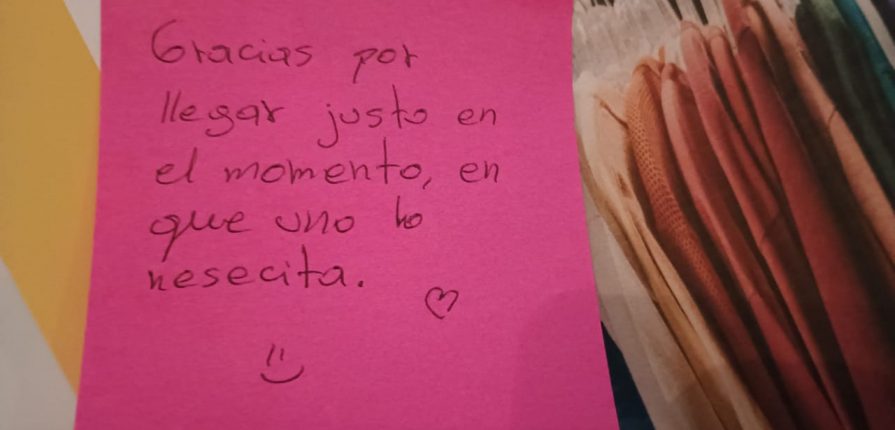 Gracias por
llegar justo en
el momento, en
que uno lo
nesecita.